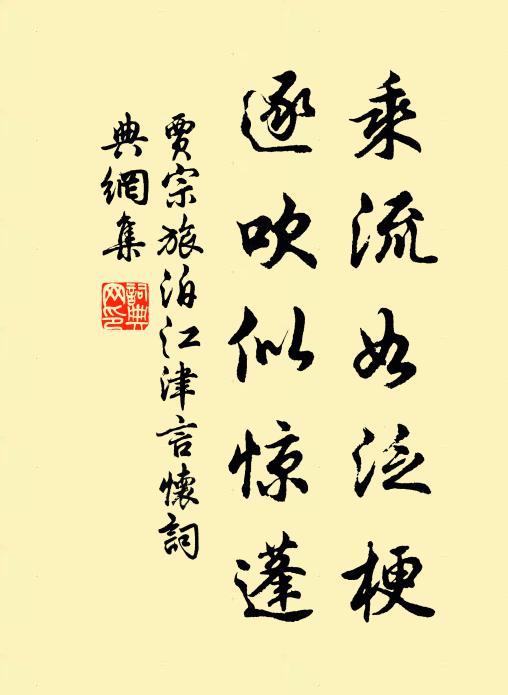 乘流如泛梗
逐吹似惊蓬
贾宗旅泊江津言懷詞
典網集
詞典网印